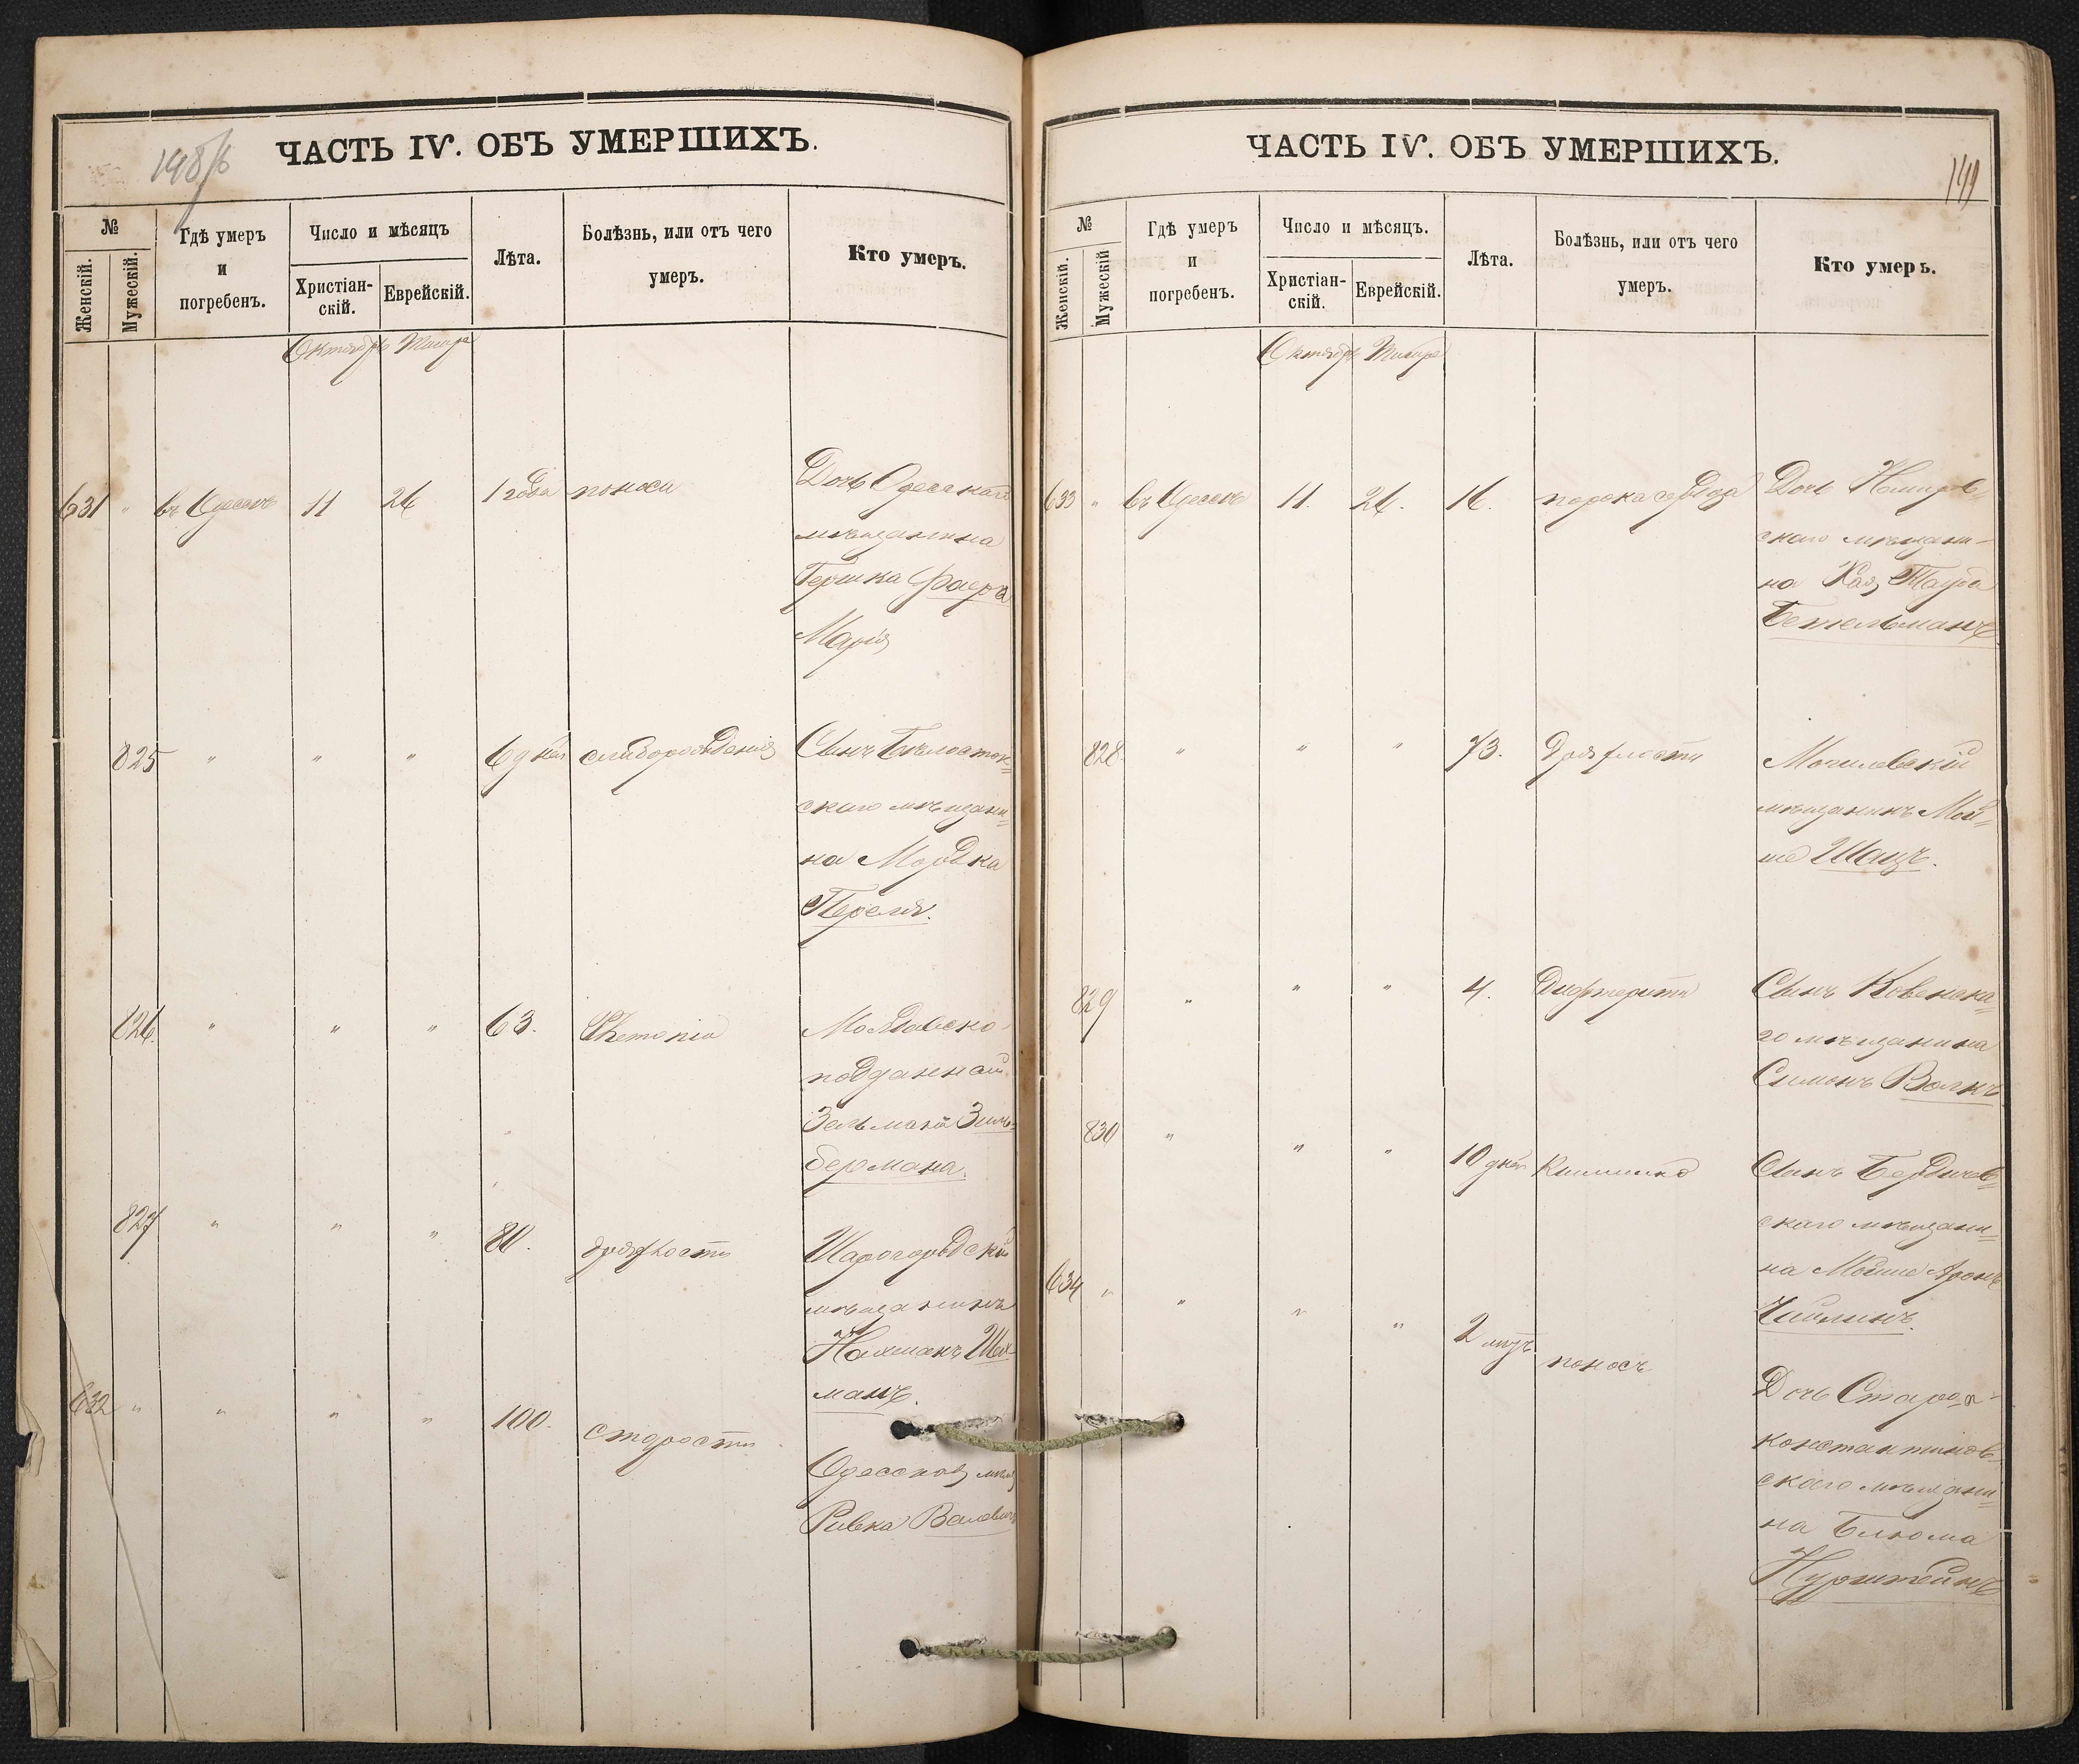 ЧАСТЬ IV. ОБЪ УМЕРШИХЪ.
№
Женскій.
Мужескій.
Гдѣ умеръ
и
погребенъ.
Число и мѣсяцъ
Христіан-
скій.
Еврейскій.
Лѣта.
Болѣзнь, или отъ чего
умеръ.
Кто умеръ.
Октябрь
631 " въ Одессѣ 11 26 1 года поноси
Дочь Одесскаго
мѣщанина
Гершка Фаера
Марія
825 " " " 6 дней слаборожденія
Сынъ Бѣлосток=
скаго мѣщани=
на Мордка
Переля.
826. " " " 63.
Молдавско-
подданнай
Зельманъ Зиль=
бермана.
827 " " " 80. дряхлости
Шарогородскій
мѣщанинъ
Нахманъ Шех-
манъ.
632 " " " " 100. старости
Одесская мѣщ
Ривка
ЧАСТЬ IV. ОБЪ УМЕРШИХЪ.
149
№
Женскій.
Мужескій
Гдѣ умеръ
и
погребенъ.
Число и мѣсяцъ.
Христіан-
скій.
Еврейскій.
Лѣта.
Болѣзнь, или отъ чего
умеръ.
Кто умеръ.
Октябрь
633 " въ Одессѣ 11. 26. 16. порока сердца
Дочь Немиров=
скаго мѣщани-
на Хая Тауба
Бетельманъ
828. " " " 73. Дряхлости
Могилевскій
мѣщанинъ Мой=
ше Шацъ.
829 " " " 4. Дифтерити
Сынъ Ковенска=
го мѣщанина
Симонъ Волкъ
830 " " " 10 дней
Сынъ Бердичев=
скаго мѣщани=
на Мойше Аронъ
634 " " " " 2 мѣз поносъ
Дочь Старо-
константинов=
скаго мѣщани=
на Блюма